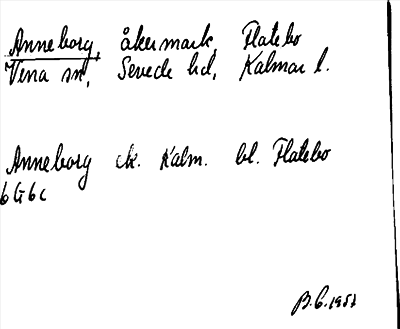 Anneborg, åkermark, Flatebo
Vena sn, Sevede hd, Kalmar l.
Anneborg ek. Kalm. bl. Flatebo
6 G 6 c
B.G. 1957